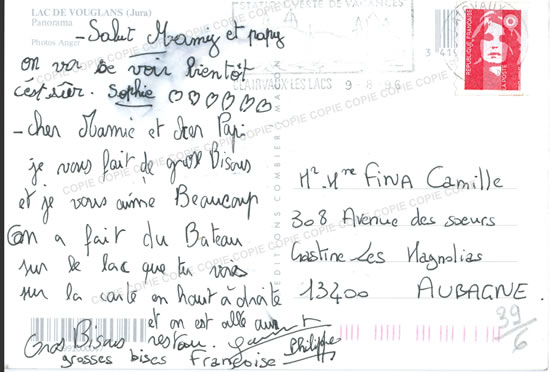 LAC DE VOUGLANS (Jura)
Panorama
Photos Anger
- Salut Mamy et papy
on va se voir bientôt
c'est sûr. Sophie
- Cher Mamie et cher Papi
je vous fait de gross Bisous
et je vous aime Beaucoup
On a fait du Bateau
sur le lac que tu vois
sur la carte en haut à droite
et on est allé au
restau.
Gros Bisous
grosses bises Françoise Philippe
EDITIONS COMBIER MACON
CLAIRVAUX-LES-LACS 9-8-96
REPUBLIQUE FRANÇAISE
LA POSTE
Mr. Mme FINA Camille
308 Avenue des soeurs
Gastine Les Magnolias
13400 AUBAGNE.
39/6
COPIE COPIE COPIE COPIE